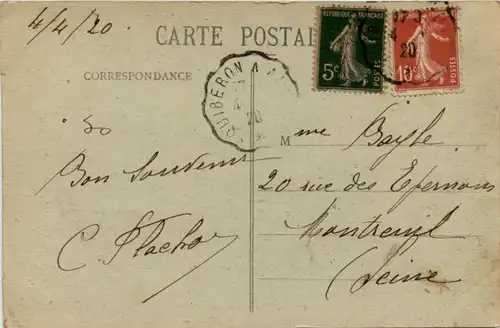 4/4/20.
CARTE POSTA
RÉPUBLIQUE FRANÇAISE
5c
POSTES
10c
POSTES
CORRESPONDANCE
QUIBERON A A
4
20
20
Bon Souvenir
C
M me Bayle
20 rue des
Montreuil
(Seine